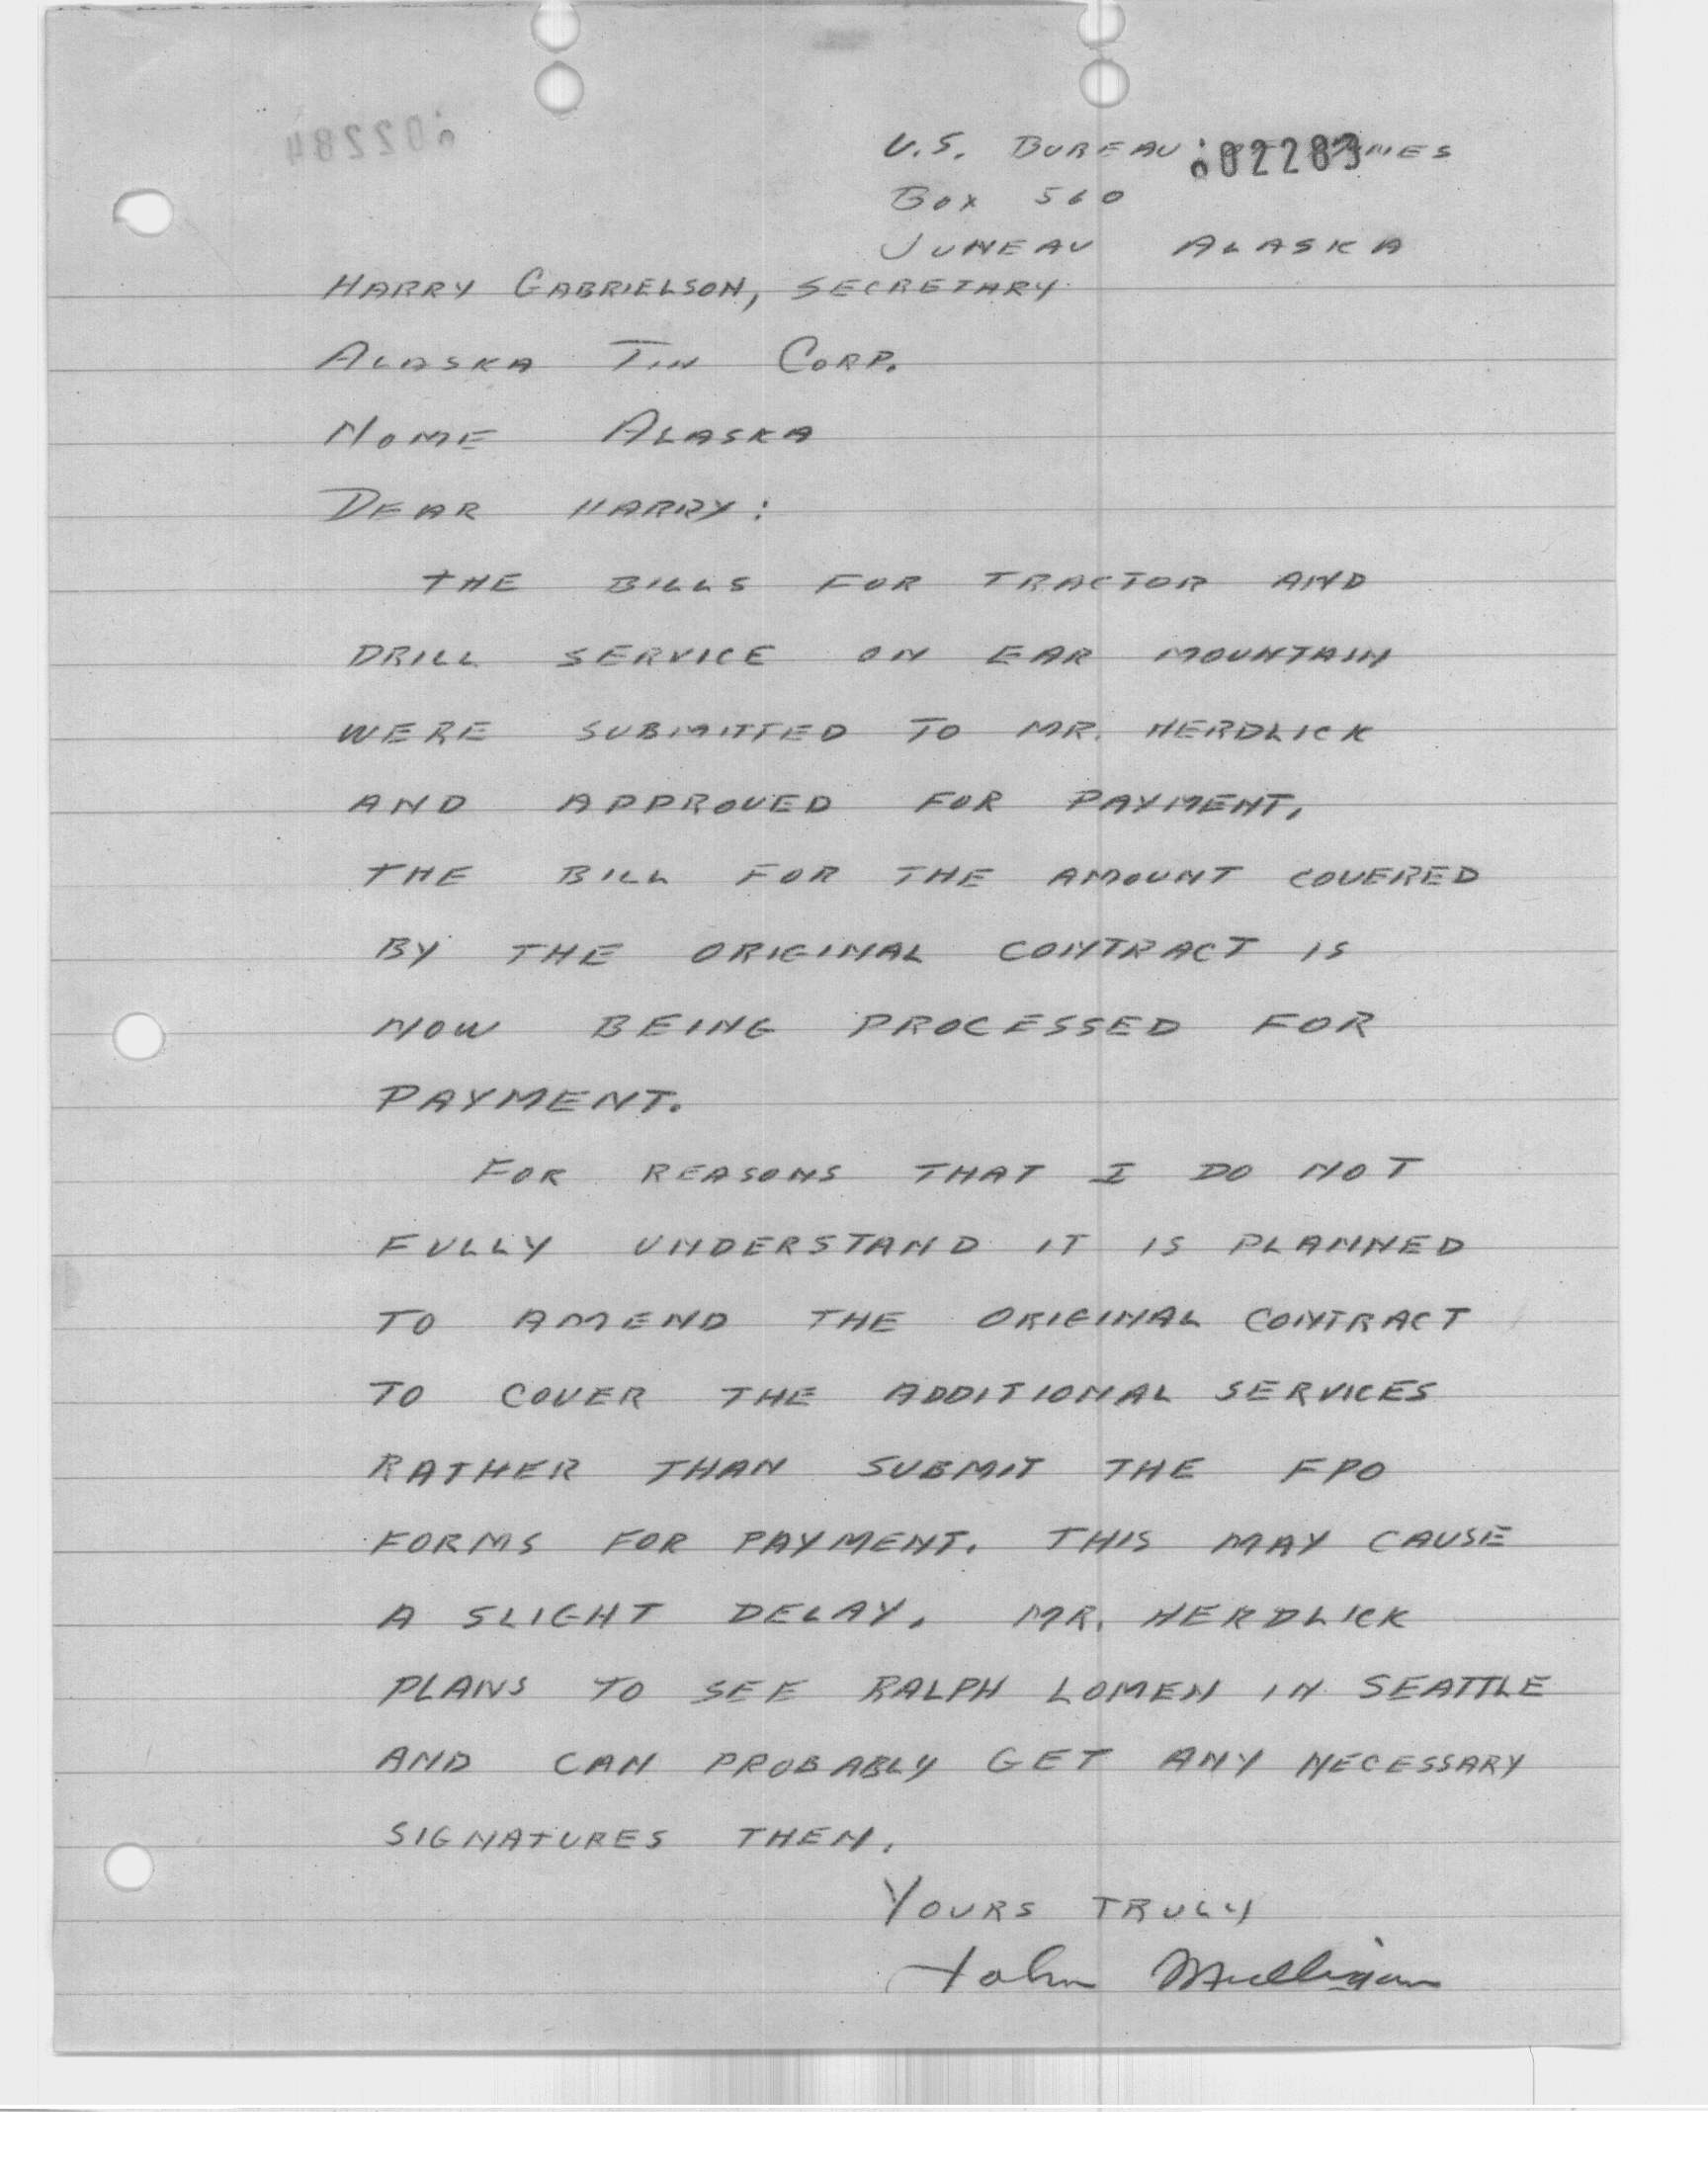 002284
U.S. BUREAU OF MINES
002283
BOX 560
JUNEAU ALASKA
HARRY GABRIELSON, SECRETARY
ALASKA TIN CORP.
NOME ALASKA
DEAR HARRY:
THE BILLS FOR TRACTOR AND
DRILL SERVICE ON EAR MOUNTAIN
WERE SUBMITTED TO MR. HERDLICK
AND APPROVED FOR PAYMENT.
THE BILL FOR THE AMOUNT COVERED
BY THE ORIGINAL CONTRACT IS
NOW BEING PROCESSED FOR
PAYMENT.
FOR REASONS THAT I DO NOT
FULLY UNDERSTAND IT IS PLANNED
TO AMEND THE ORIGINAL CONTRACT
TO COVER THE ADDITIONAL SERVICES
RATHER THAN SUBMIT THE FPO
FORMS FOR PAYMENT. THIS MAY CAUSE
A SLIGHT DELAY. MR. HERDLICK
PLANS TO SEE RALPH LOMEN IN SEATTLE
AND CAN PROBABLY GET ANY NECESSARY
SIGNATURES THEN.
YOURS TRULY
John Mulligan